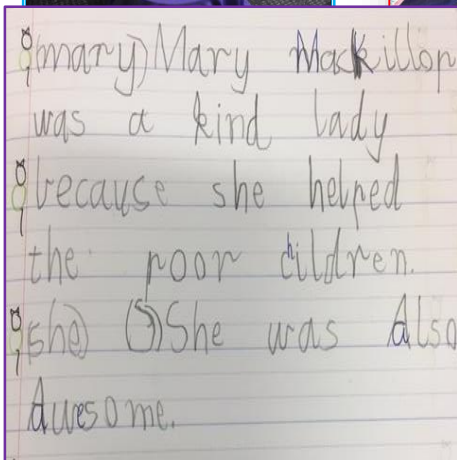 (mary) Mary Mackillop
was a kind lady
because she helped
the poor children.
(she) (S) She was Also
Awesome.